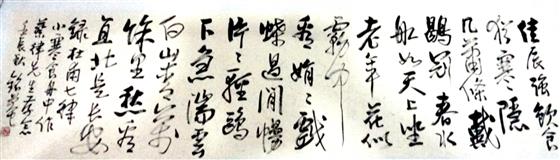 佳辰強飲食
猶寒隱
几蕭條戴
鶡冠春水
船如天上坐
老年花似
霧中
看娟〻戲
蝶過閒幔
片〻輕鷗
下急湍雲
白山青萬
餘里愁看
直北是長安
錄杜甫七律
小寒食舟中作
先生存念
壬辰秋